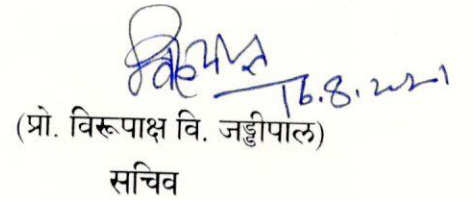 16.8.2021
(प्रो. विरूपाक्ष वि. जड्डीपाल)
सचिव